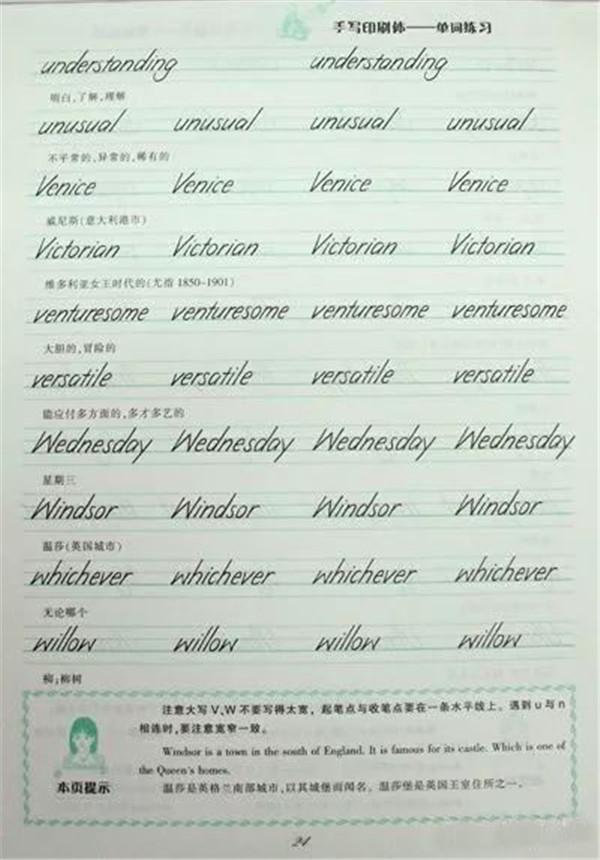 手写印刷体——单词练习
understanding understanding
明白,了解,理解
unusual unusual unusual unusual
不平常的,异常的,稀有的
Venice Venice Venice Venice
威尼斯(意大利港市)
Victorian Victorian Victorian Victorian
维多利亚女王时代的(尤指 1850-1901)
venturesome venturesome venturesome venturesome
大胆的,冒险的
versatile versatile versatile versatile
能应付多方面的,多才多艺的
Wednesday Wednesday Wednesday Wednesday
星期三
Windsor Windsor Windsor Windsor
温莎(英国城市)
whichever whichever whichever whichever
无论哪个
willow willow willow willow
柳;柳树
注意大写 V,W 不要写得太宽，起笔点与收笔点要在一条水平线上。遇到 u 与 n
相连时,要注意宽窄一致。
Windsor is a town in the south of England. It is famous for its castle. Which is one of
the Queen's homes.
温莎是英格兰南部城市,以其城堡而闻名。温莎堡是英国王室住所之一。
本页提示
24